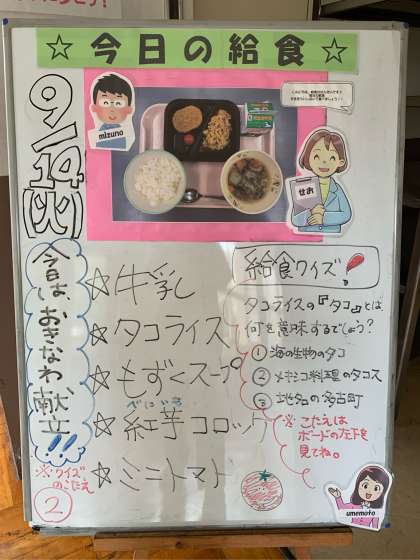 ☆今日の給食☆
9/14(火)
mizuno
せお
今日は、おきなわ献立!!
☆牛乳
☆タコライス
☆もずくスープ
☆紅芋コロッケ
べにいも
☆ミニトマト
給食クイズ
タコライスの『タコ』とは
何を意味するでしょう?
①海の生物のタコ
②メキシコ料理のタコス
③地名の多古町
※こたえは
ボードの左下を
見てね。
※クイズ
のこたえ
②
umemoto